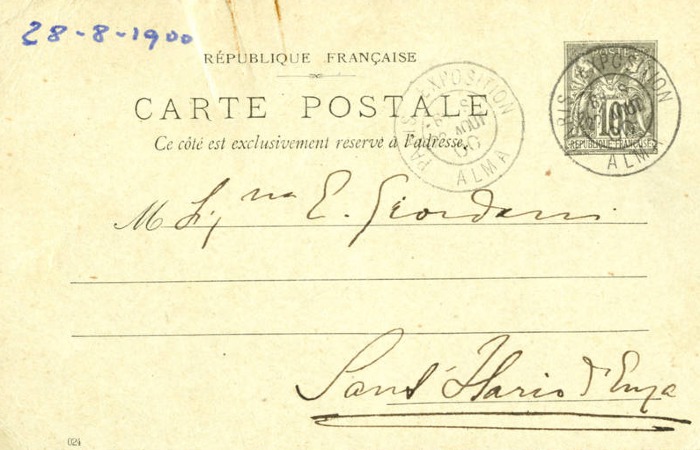 28-8-1900
RÉPUBLIQUE FRANÇAISE
CARTE POSTALE
Ce côté est exclusivement réservé à l'adresse.
PARIS EXPOSITION
AOUT
00
ALMA
POSTES
PARIS EXPOSITION
10
REPUBLIQUE FRANÇAISE
ALMA
E. Giordani
Sant' Ilario d'Enza
024